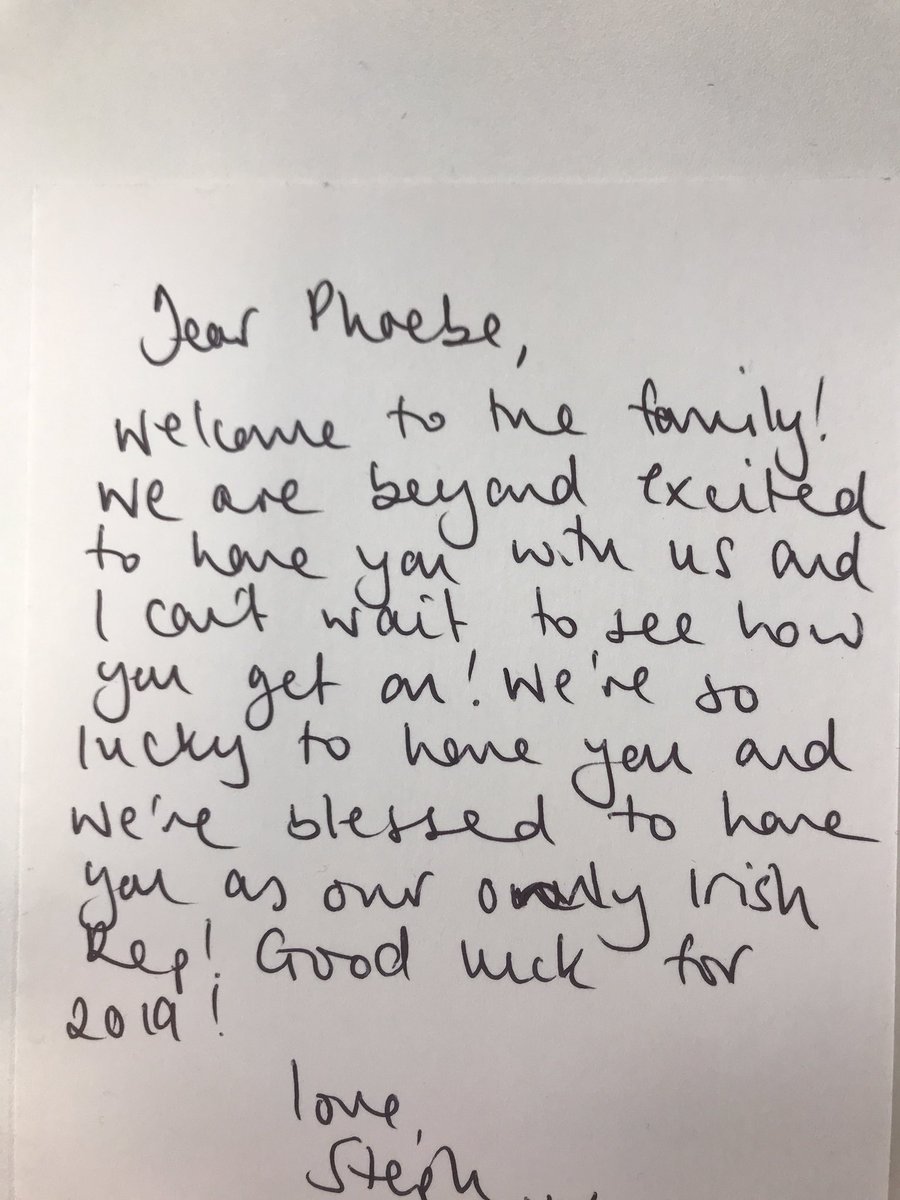 Dear Phoebe,
Welcome to the family!
We are beyond excited
to have you with us and
I can't wait to see how
you get on! We're so
lucky to have you and
we're blessed to have
you as our only Irish
Rep! Good luck for
2019!
love,
Steph